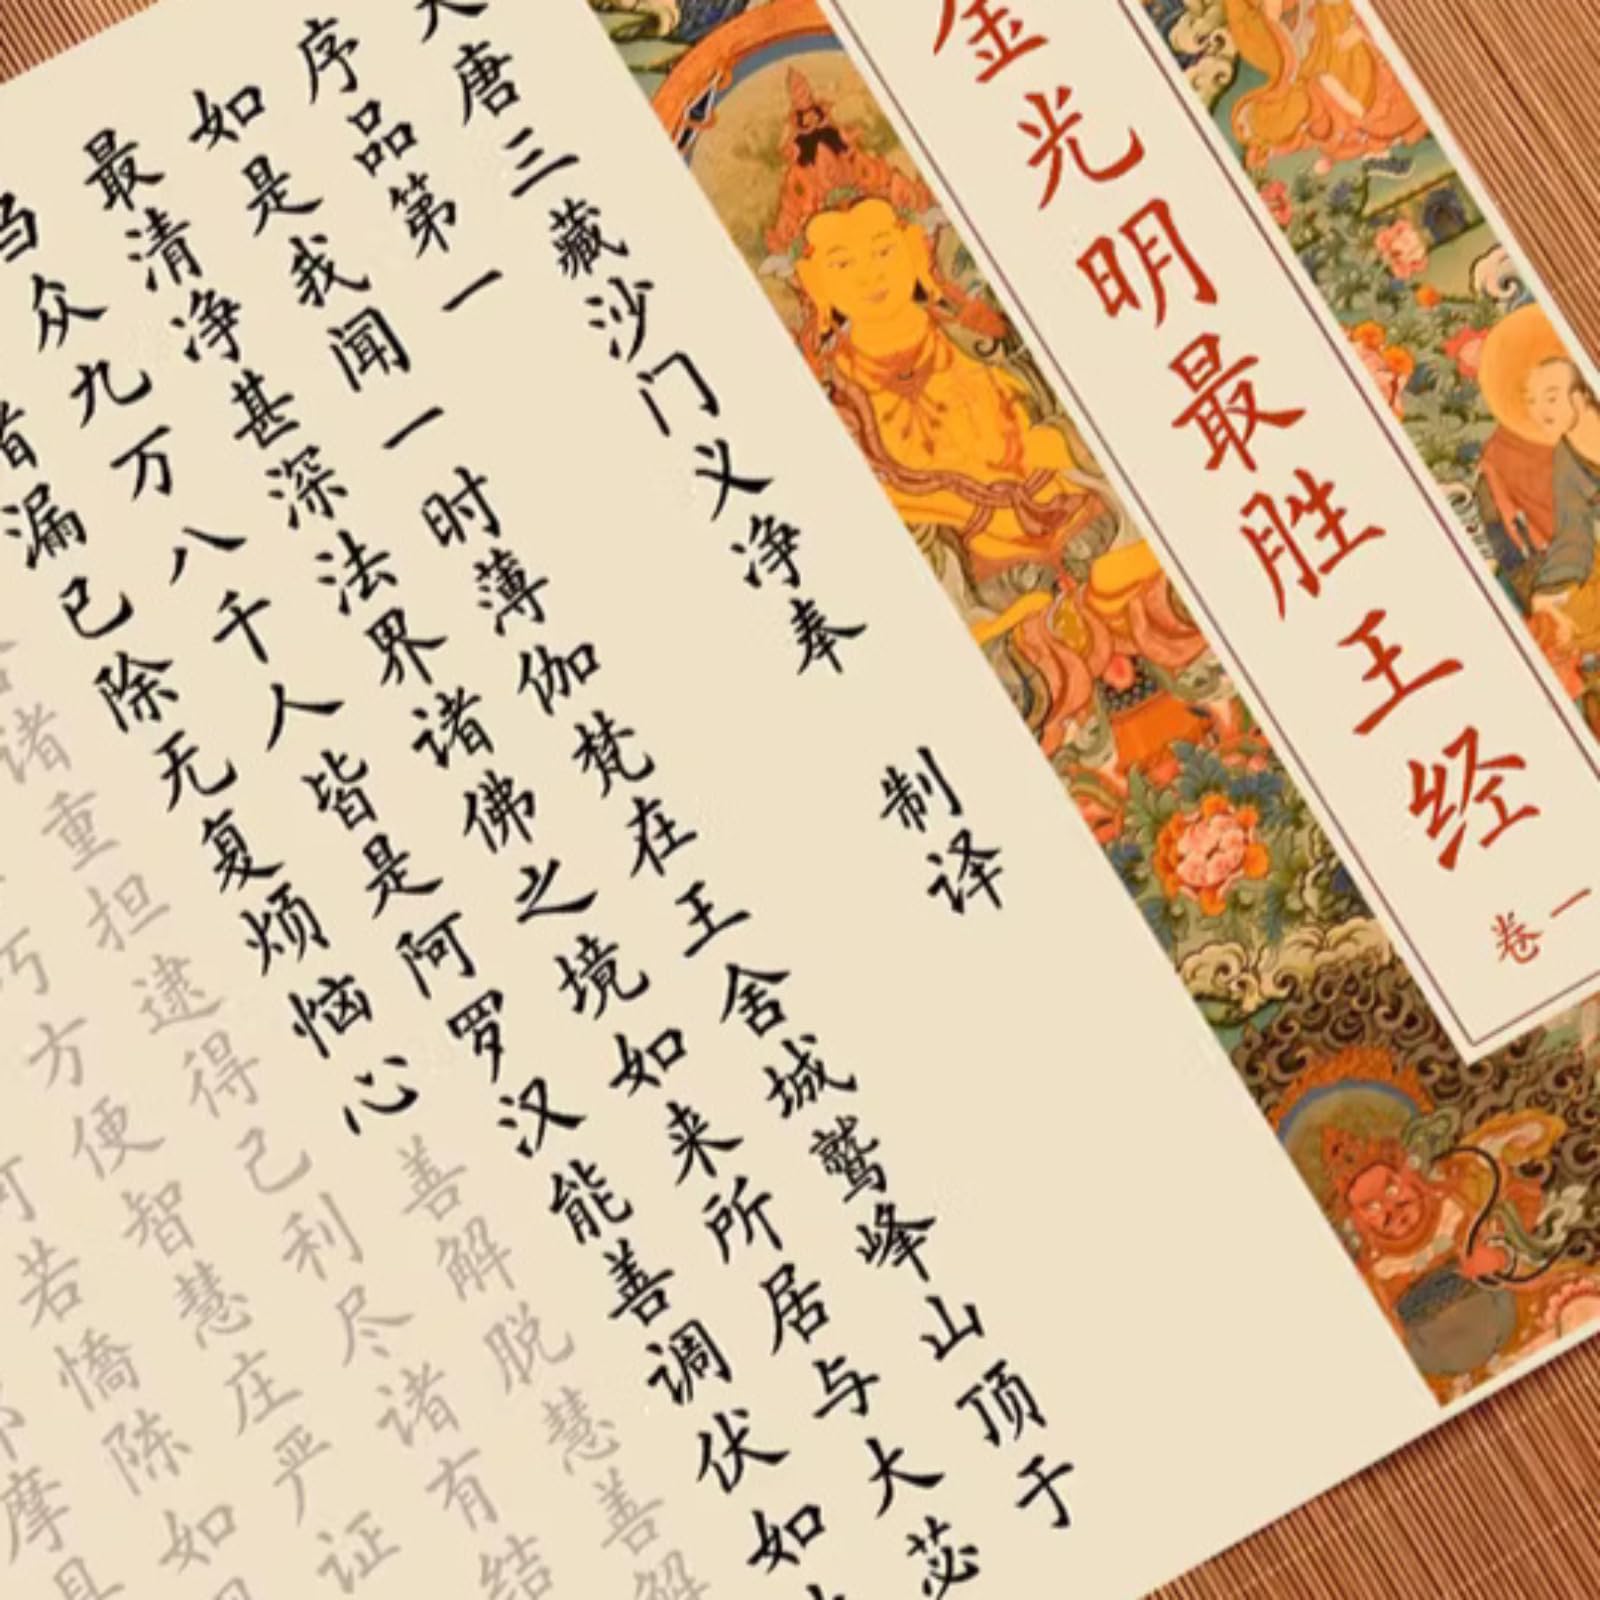 金光明最胜王经
卷一
大唐三藏沙门义净奉 制译
序品第一
如是我闻一时薄伽梵在王舍城鹫峰山顶于
最清净甚深法界诸佛之境如来所居与大苾
刍众九万八千人皆是阿罗汉能善调伏如
诸漏已除无复烦恼心善解脱慧善解
诸重担逮得己利尽诸有结
巧方便智慧庄严证
若憍陈如
摩